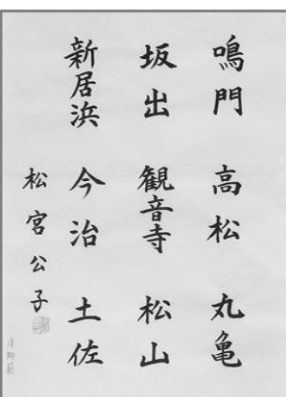 鳴門 高松 丸亀
坂出 観音寺 松山
新居浜 今治 土佐
松宮公子